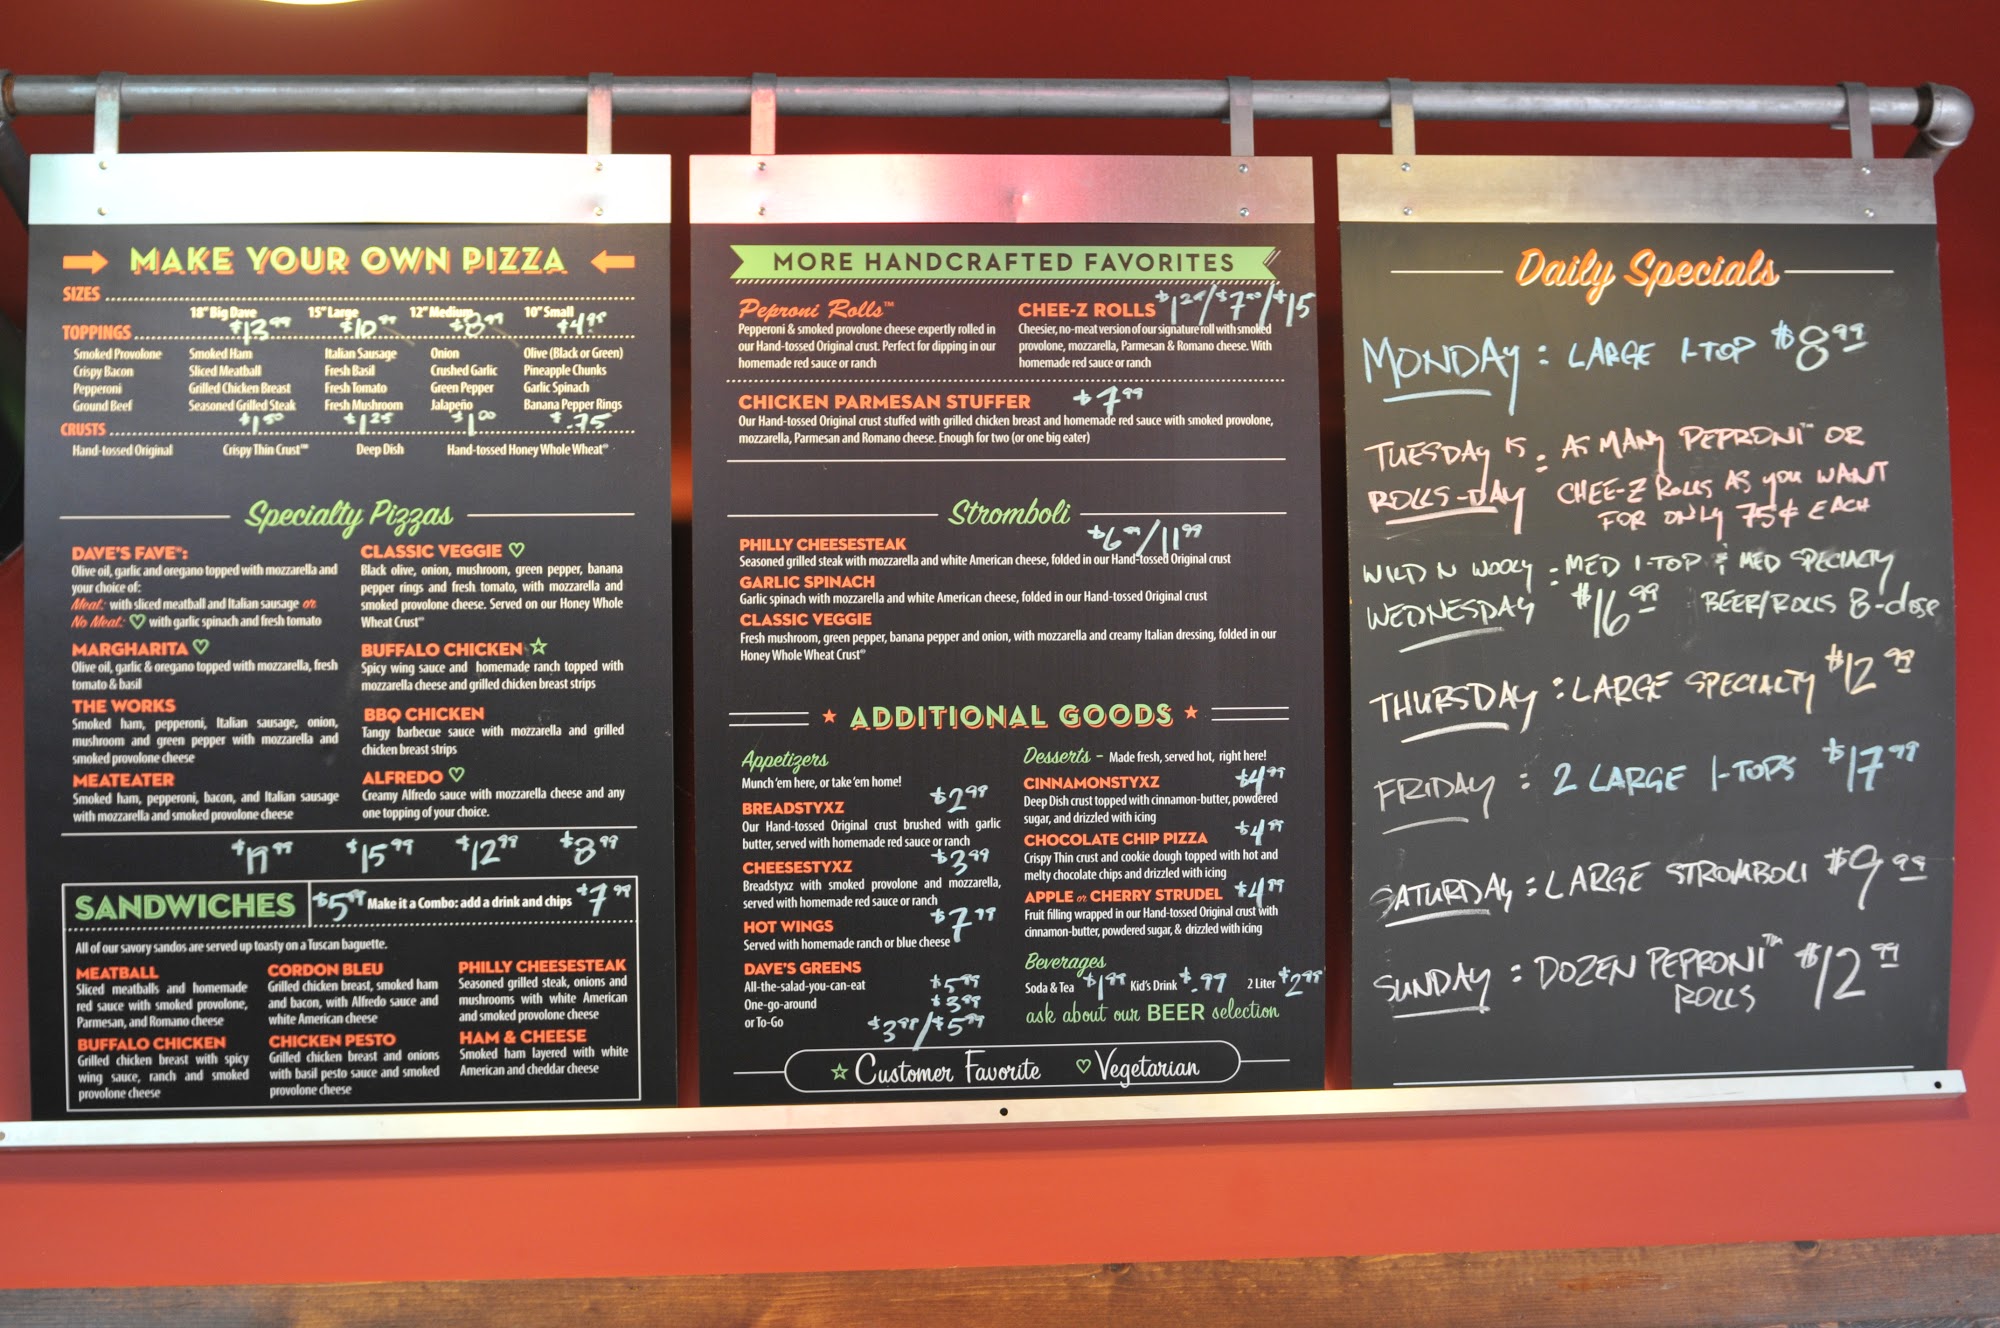 MAKE YOUR OWN PIZZA
SIZES
18" Big Dave 15" Large 12" Medium 10" Small
$13.99 $10.99 $8.99 $4.99
TOPPINGS
Smoked Provolone Smoked Ham Italian Sausage Onion Olive (Black or Green)
Crispy Bacon Sliced Meatball Fresh Basil Crushed Garlic Pineapple Chunks
Pepperoni Grilled Chicken Breast Fresh Tomato Green Pepper Garlic Spinach
Ground Beef Seasoned Grilled Steak Fresh Mushroom Jalapeño Banana Pepper Rings
$1.50 $1.25 $1.00 $.75
CRUSTS
Hand-tossed Original Crispy Thin Crust™ Deep Dish Hand-tossed Honey Whole Wheat®
Specialty Pizzas
DAVE'S FAVE®:
Olive oil, garlic and oregano topped with mozzarella and
your choice of:
Meat: with sliced meatball and Italian sausage or
No Meat: ♡ with garlic spinach and fresh tomato
MARGHARITA ♡
Olive oil, garlic & oregano topped with mozzarella, fresh
tomato & basil
THE WORKS
Smoked ham, pepperoni, Italian sausage, onion,
mushroom and green pepper with mozzarella and
smoked provolone cheese
MEATEATER
Smoked ham, pepperoni, bacon, and Italian sausage
with mozzarella and smoked provolone cheese
CLASSIC VEGGIE ♡
Black olive, onion, mushroom, green pepper, banana
pepper rings and fresh tomato, with mozzarella and
smoked provolone cheese. Served on our Honey Whole
Wheat Crust®
BUFFALO CHICKEN ☆
Spicy wing sauce and homemade ranch topped with
mozzarella cheese and grilled chicken breast strips
BBQ CHICKEN
Tangy barbecue sauce with mozzarella and grilled
chicken breast strips
ALFREDO ♡
Creamy Alfredo sauce with mozzarella cheese and any
one topping of your choice.
$19.99 $15.99 $12.99 $8.99
SANDWICHES $5.99 Make it a Combo: add a drink and chips $7.99
All of our savory sandos are served up toasty on a Tuscan baguette.
MEATBALL
Sliced meatballs and homemade
red sauce with smoked provolone,
Parmesan, and Romano cheese
BUFFALO CHICKEN
Grilled chicken breast with spicy
wing sauce, ranch and smoked
provolone cheese
CORDON BLEU
Grilled chicken breast, smoked ham
and bacon, with Alfredo sauce and
white American cheese
CHICKEN PESTO
Grilled chicken breast and onions
with basil pesto sauce and smoked
provolone cheese
PHILLY CHEESESTEAK
Seasoned grilled steak, onions and
mushrooms with white American
and smoked provolone cheese
HAM & CHEESE
Smoked ham layered with white
American and cheddar cheese
MORE HANDCRAFTED FAVORITES
Peproni Rolls™
Pepperoni & smoked provolone cheese expertly rolled in
our Hand-tossed Original crust. Perfect for dipping in our
homemade red sauce or ranch
CHEE-Z ROLLS /$7.00/$15
Cheesier, no-meat version of our signature roll with smoked
provolone, mozzarella, Parmesan & Romano cheese. With
homemade red sauce or ranch
CHICKEN PARMESAN STUFFER $7.99
Our Hand-tossed Original crust stuffed with grilled chicken breast and homemade red sauce with smoked provolone,
mozzarella, Parmesan and Romano cheese. Enough for two (or one big eater)
Stromboli
$6.99/11.99
PHILLY CHEESESTEAK
Seasoned grilled steak with mozzarella and white American cheese, folded in our Hand-tossed Original crust
GARLIC SPINACH
Garlic spinach with mozzarella and white American cheese, folded in our Hand-tossed Original crust
CLASSIC VEGGIE
Fresh mushroom, green pepper, banana pepper and onion, with mozzarella and creamy Italian dressing, folded in our
Honey Whole Wheat Crust®
★ ADDITIONAL GOODS ★
Appetizers
Munch 'em here, or take 'em home!
BREADSTYXZ $2.99
Our Hand-tossed Original crust brushed with garlic
butter, served with homemade red sauce or ranch
CHEESESTYXZ $3.99
Breadstyxz with smoked provolone and mozzarella,
served with homemade red sauce or ranch
HOT WINGS $7.99
Served with homemade ranch or blue cheese
DAVE'S GREENS
All-the-salad-you-can-eat $5.99
One-go-around $3.99
or To-Go $3.99/$5.99
Desserts - Made fresh, served hot, right here!
CINNAMONSTYXZ $4.99
Deep Dish crust topped with cinnamon-butter, powdered
sugar, and drizzled with icing
CHOCOLATE CHIP PIZZA $4.99
Crispy Thin crust and cookie dough topped with hot and
melty chocolate chips and drizzled with icing
APPLE or CHERRY STRUDEL $4.99
Fruit filling wrapped in our Hand-tossed Original crust with
cinnamon-butter, powdered sugar, & drizzled with icing
Beverages
Soda & Tea $1.99 Kid's Drink $.99 2 Liter $2.99
ask about our BEER selection
☆ Customer Favorite ♡ Vegetarian
Daily Specials
MONDAY : LARGE 1-TOP $8.99
TUESDAY IS : AS MANY PEPRONI™ OR
ROLLS-DAY CHEE-Z ROLLS AS YOU WANT
FOR ONLY 75¢ EACH
WILD N WOOLY : MED 1-TOP & MED SPECIALTY
WEDNESDAY $16.99 BEER/ROLLS 8-close
THURSDAY : LARGE SPECIALTY $12.99
FRIDAY : 2 LARGE 1-TOPS $17.99
SATURDAY : LARGE STROMBOLI $9.99
SUNDAY : DOZEN PEPRONI™ $12.99
ROLLS